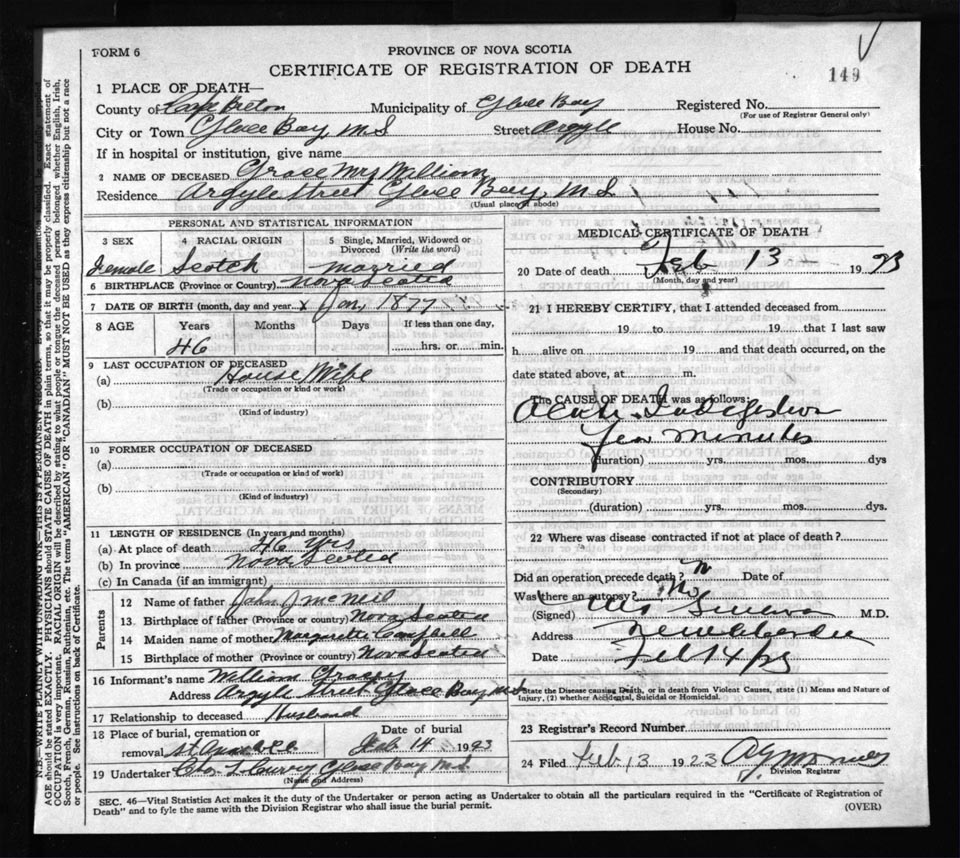 FORM 6
PROVINCE OF NOVA SCOTIA
CERTIFICATE OF REGISTRATION OF DEATH
149
1 PLACE OF DEATH—
County of Cape Breton Municipality of Glace Bay Registered No.
(For use of Registrar General only)
City or Town Glace Bay N.S Street Argyle House No.
If in hospital or institution, give name
2 NAME OF DECEASED Grace Mrs William
Residence Argyle Street Glace Bay N.S
(Usual place of abode)
PERSONAL AND STATISTICAL INFORMATION
3 SEX 4 RACIAL ORIGIN 5 Single, Married, Widowed or Divorced (Write the word)
Female Scotch Married
6 BIRTHPLACE (Province or Country) Nova Scotia
7 DATE OF BIRTH (month, day and year) x Jan, 1877
8 AGE Years Months Days If less than one day,
46 hrs. or min.
9 LAST OCCUPATION OF DECEASED
(a) House Wife
(Trade or occupation or kind or work)
(b)
(Kind of industry)
10 FORMER OCCUPATION OF DECEASED
(a)
(Trade or occupation or kind of work)
(b)
(Kind of industry)
11 LENGTH OF RESIDENCE (In years and months)
(a) At place of death 46 yrs
(b) In province Nova Scotia
(c) In Canada (if an immigrant)
Parents
12 Name of father John J McNeil
13 Birthplace of father (Province or country) Nova Scotia
14 Maiden name of mother Margarette Campbell
15 Birthplace of mother (Province or country) Nova Scotia
16 Informant's name William Grace
Address Argyle Street Glace Bay N.S
17 Relationship to deceased Husband
18 Place of burial, cremation or removal Date of burial
Feb 14 1923
19 Undertaker Glace Bay N.S
(Name and Address)
MEDICAL CERTIFICATE OF DEATH
20 Date of death Feb 13 1923
(Month, day and year)
21 I HEREBY CERTIFY, that I attended deceased from
19 to 19 that I last saw
h alive on 19 and that death occurred, on the
date stated above, at m.
The CAUSE OF DEATH was as follows:
Acute Indigestion
Few minutes
(duration) yrs. mos. dys
CONTRIBUTORY
(Secondary)
(duration) yrs. mos. dys.
22 Where was disease contracted if not at place of death?
Did an operation precede death? Date of
Was there an autopsy? No
(Signed) M.D.
Address New Aberdeen
Date Feb 14/23
State the Disease causing Death, or in death from Violent Causes, state (1) Means and Nature of Injury, (2) whether Accidental, Suicidal or Homicidal.
23 Registrar's Record Number
24 Filed Feb 13 1923
Division Registrar
SEC. 46—Vital Statistics Act makes it the duty of the Undertaker or person acting as Undertaker to obtain all the particulars required in the "Certificate of Registration of
Death" and to fyle the same with the Division Registrar who shall issue the burial permit.
(OVER)
N.B.—WRITE PLAINLY WITH UNFADING INK—THIS IS A PERMANENT RECORD.
AGE should be stated EXACTLY. PHYSICIANS should STATE CAUSE OF DEATH in plain terms, so that it may be properly classified. Exact statement of
OCCUPATION is very important. RACIAL ORIGIN will be described by stating to what people or tongue the deceased person belonged whether English, Irish,
Scotch, French, German, Russian, Ruthenian, etc. The terms "AMERICAN" OR "CANADIAN" MUST NOT BE USED as they express citizenship but not a race
or people. See instructions on back of Certificate.